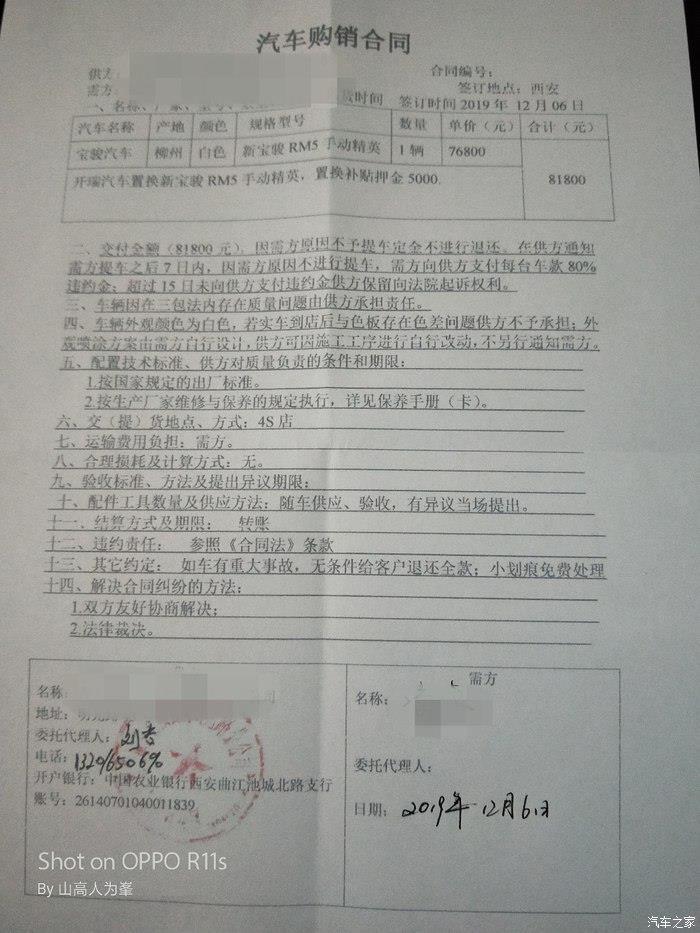 汽车购销合同
供方:
合同编号:
需方:
签订地点: 西安
时间 签订时间 2019 年 12 月 06 日
汽车名称 产地 颜色 规格型号 数量 单价（元） 合计（元）
宝骏汽车 柳州 白色 新宝骏 RM5 手动精英 1 辆 76800
开瑞汽车置换新宝骏 RM5 手动精英，置换补贴押金 5000. 81800
二、交付金额（81800 元），因需方原因不予提车定金不进行退还。在供方通知
需方提车之后 7 日内，因需方原因不进行提车，需方向供方支付每台车款 80%
违约金；超过 15 日未向供方支付违约金供方保留向法院起诉权利。
三、车辆因在三包法内存在质量问题由供方承担责任。
四、车辆外观颜色为白色，若实车到店后与色板存在色差问题供方不予承担；外
观喷涂方案由需方自行设计，供方可因施工工序进行自行改动，不另行通知需方。
五、配置技术标准、供方对质量负责的条件和期限:
1.按国家规定的出厂标准。
2.按生产厂家维修与保养的规定执行，详见保养手册（卡）。
六、交（提）货地点、方式: 4S 店
七、运输费用负担: 需方。
八、合理损耗及计算方式: 无。
九、验收标准、方法及提出异议期限:
十、配件工具数量及供应方法: 随车供应、验收，有异议当场提出。
十一、结算方式及期限: 转账
十二、违约责任: 参照《合同法》条款
十三、其它约定: 如车有重大事故，无条件给客户退还全款；小划痕免费处理
十四、解决合同纠纷的方法:
1.双方友好协商解决；
2.法律裁决。
需方
名称:
名称:
地址:
委托代理人:
电话:
开户银行: 中国农业银行西安曲江池城北路支行
账号: 26140701040011839
委托代理人:
日期: 2019年12月6日
Shot on OPPO R11s
By 山高人为峯
汽车之家